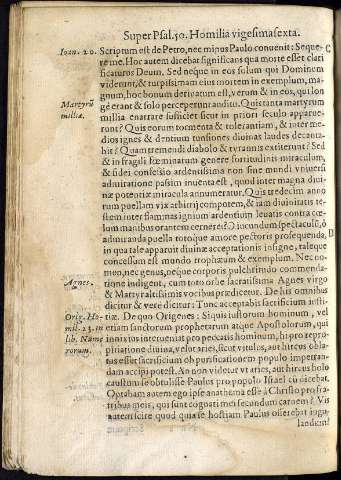 Super Psal. 50. Homilia vigesimasexta.
Ioan. 20. Scriptum est de Petro, nec minus Paulo convenit: Seque-
re me. Hoc autem dicebat significans qua morte esset clari
ficaturus Deum. Sed neque in eos solum qui Dominem
viderunt, & turpissimam eius mortem in exemplum, ma-
gnum, hoc bonum derivatum est, verum & in eos, qui lon
Martyrũ
millia.
gè erant & solo perceperunt auditu. Quis tanta martyrum
millia enarrare sufficiet sicut in priori seculo apparue-
runt? Quis eorum tormenta & tolerantiam, & inter me-
dios ignes & dentium tunsiones divinas laudes decanta-
bit? Quam tremendi diabolo & tyrannis extiterunt? Sed
& in fragili fœminarum genere fortitudinis miraculum,
& fidei confessio ardentissima non sine mundi vniversi
admiratione passim inventa est, quod inter magna divi-
næ potentiæ miracula annumeratur. Quis tredecim anno
rum puellam vix arbitrij compotem, & iam divinitatis te-
stem inter flammas ignium ardentium levatis contra cœ-
lum manibus orantem cernere? O iucundum spectaculũ, ô
admiranda puella totoque amore pectoris prosequenda,
in qua tale apparuit divinæ acceptationis insigne, taleque
concessum est mundo trophæum & exemplum. Nec no-
men, nec genus, neque corporis pulchritudo commenda-
Agnes.
tione indigent, cum toto orbe sacratissima Agnes virgo
& Martyr altissimis vocibus prædicetur. De his omnibus
dicitur & verè dicitur: Tunc acceptabis sacrificium iusti-
Orig. Ho-
mil. 23. in
lib. Nume
rorum.
tiæ. De quo Origenes: Si quis iustorum hominum, vel
etiam sanctorum prophetarum atque Apostolorum, qui
innis ius interveniat pro peccatis hominum, hi pro repro-
pitiatione divina, vel ut aries, sicut vitulus, aut hircus obla-
tus esset sacrificium ob purificationem populo impetran-
dam accipi potest. An non videtur vt aries, aut hircus holo
caustum se obtulisse Paulus pro populo Israel cũ dicebat.
Optabam autem ego ipse anathema esse à Christo pro fra-
tribus meis, qui sunt cognati mei secundum carnem? Vis
autem scire quod quia se hostiam Paulus offerebat iugu-
landam?